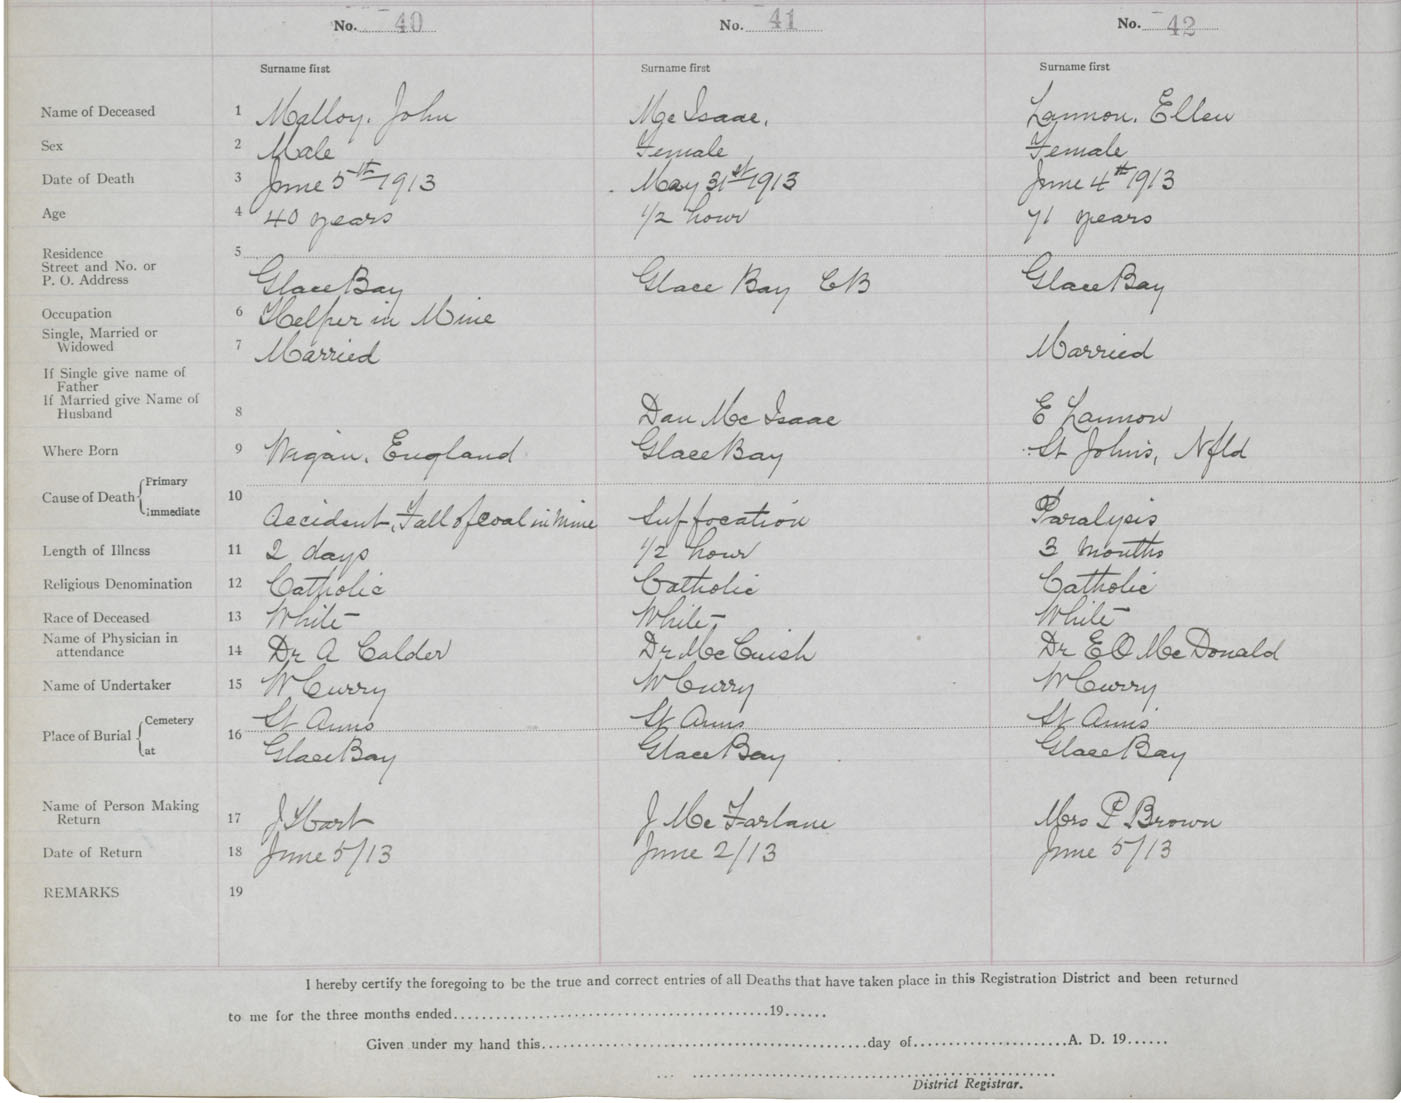 No. 40 No. 41 No. 42
Surname first Surname first Surname first
Name of Deceased 1 Malloy, John Mc Isaac, Lannon, Ellen
Sex 2 Male Female Female
Date of Death 3 June 5th 1913 May 31st 1913 June 4th 1913
Age 4 40 years 1/2 hour 71 years
Residence
Street and No. or
P. O. Address 5 Glace Bay Glace Bay CB Glace Bay
Occupation 6 Helper in Mine
Single, Married or
Widowed 7 Married Married
If Single give name of
Father
If Married give Name of
Husband 8 Dan Mc Isaac E Lannon
Where Born 9 Wigan, England Glace Bay St Johns, Nfld
Cause of Death Primary
Immediate 10 Accident, Fall of coal in mine Suffocation Paralysis
Length of Illness 11 2 days 1/2 hour 3 months
Religious Denomination 12 Catholic Catholic Catholic
Race of Deceased 13 White White White
Name of Physician in
attendance 14 Dr A Calder Dr Mc Cuish Dr E O Mc Donald
Name of Undertaker 15 W Curry W Curry W Curry
Place of Burial Cemetery 16 St Anns St Anns St Anns
at Glace Bay Glace Bay Glace Bay
Name of Person Making
Return 17 J Hart J Mc Farlane Mrs P Brown
Date of Return 18 June 5/13 June 2/13 June 5/13
REMARKS 19
I hereby certify the foregoing to be the true and correct entries of all Deaths that have taken place in this Registration District and been returned
to me for the three months ended..........19......
Given under my hand this..........day of..........A. D. 19......
District Registrar.